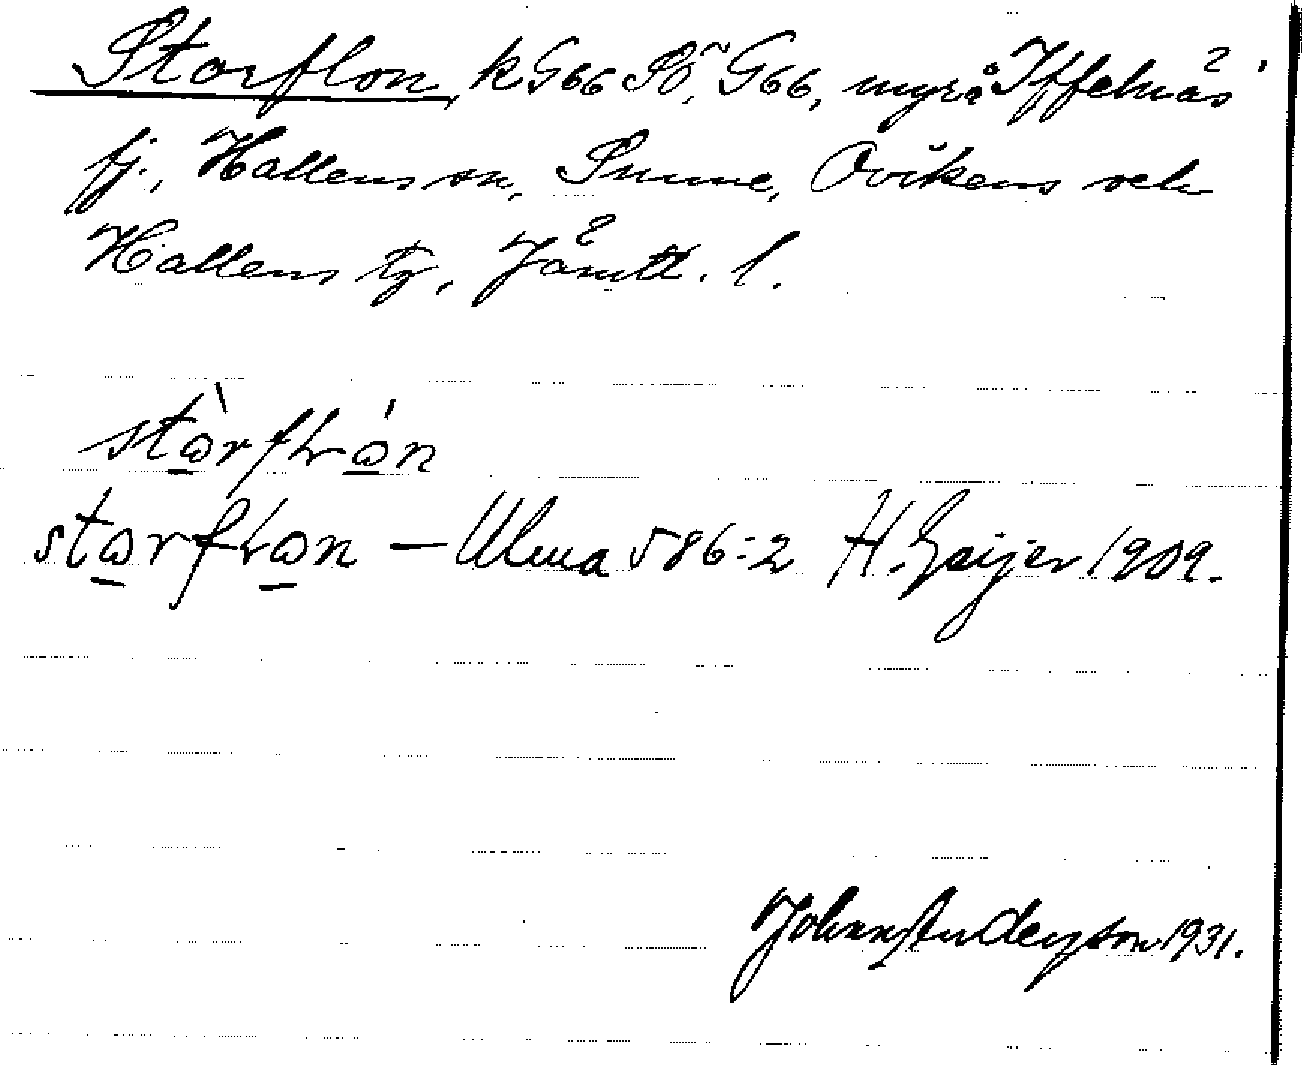 Storflon, k G66 SÖ, G66, myr å Iffelnäs
fj., Hallens sn, Sunne, Ovikens och
Hallens tg, Jämtl. l.
stòrflón
storflon – Ulma 586:2 H. Geijer 1909.
John Anderson 1931.